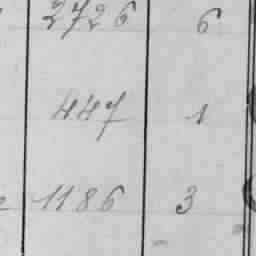 2726 6
447 1
1186 3